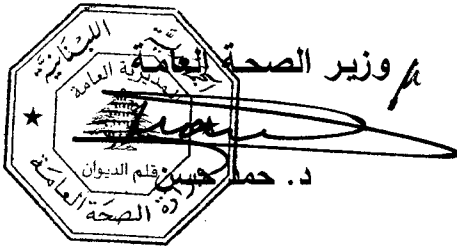 وزير الصحة العامة
د. حمد حسن
الجمهورية اللبنانية
المديرية العامة
قلم الديوان
وزارة الصحة العامة